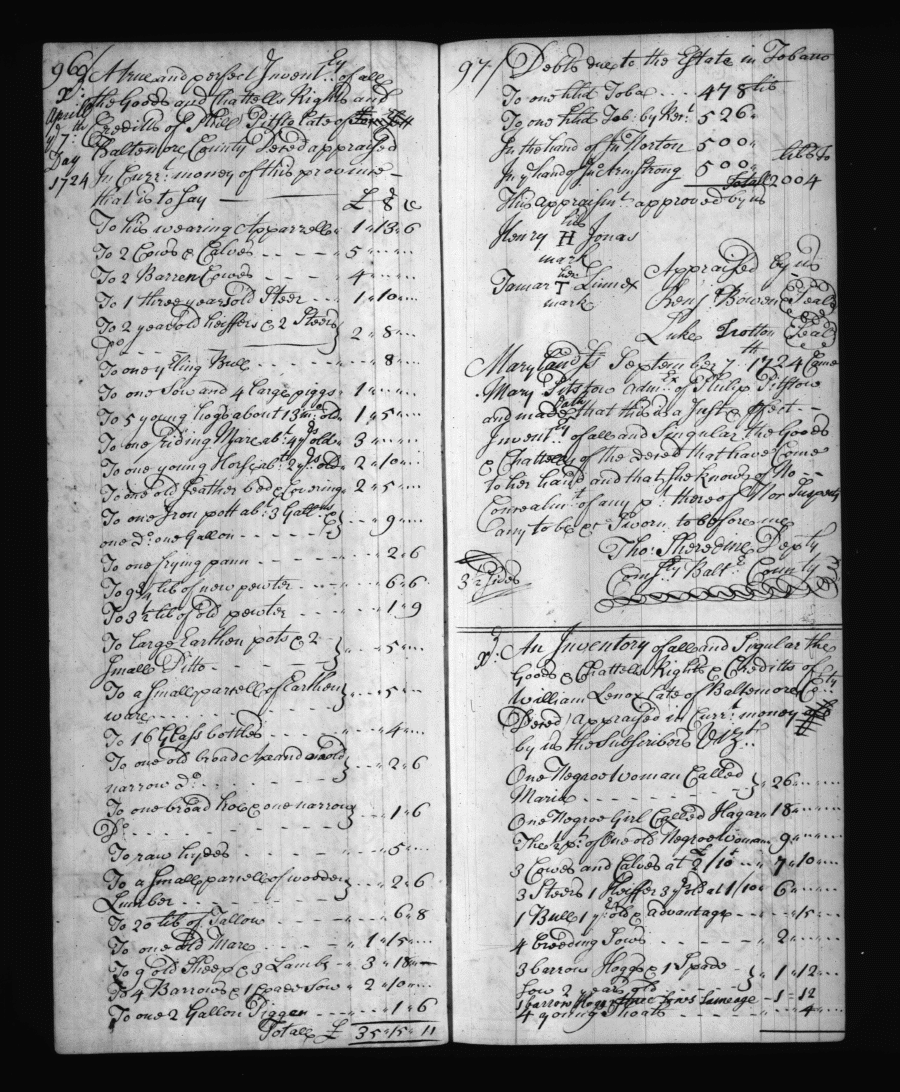 96/
Exd.
April
ye 7th
Day
1724
A true and perfect Inventry. of all
the Goods and Chattells Rights and
Creditts of Phill Pitsto Late of
Baltemore County Deced appraized
In Curr: money of this province
that is to Say £ s d
To his wearing Apparrells 1 " 13 " 6
To 2 Cows & Calves 5 "
To 2 Barren Cowes 4 "
To 1 three years old Steer 1 " 10 "
To 2 year old heiffers & 2 Steers
Do 2 " 8 "
To one yrling Bull " 8 "
To one Sow and 4 Large piggs 1 "
To 5 young hogs about 13 mo: old 1 " 5 "
To one Riding Mare abt: 4 yrs old 3 "
To one young Horse abt: 2 yrs. old 2 " 10 "
To one old feather bed & Covering 2 " 5 "
To one Iron pott abt: 3 Gallons &
one Do: one Gallon " 9 "
To one frying pann " 2 " 6
To 9¾ lib of new pewter " 6 " 6
To 3½ lib of old pewter " 1 " 9
To Large Earthen pots & 2
Small Ditto " 5 "
To a Small parcell of Earthen
ware " 5 "
To 16 Glass bottles " 4 "
To one old broad Axe and an old
narrow Do: " 2 " 6
To one broad hoe & one narrow
Do " 1 " 6
To raw hydes " 5 "
To a Small parcell of wooden
Lumber " 2 " 6
To 20 lib of Tallow " 6 " 8
To one old Mare 1 " 15 "
To 9 old Sheep & 3 Lambs 3 " 18 "
To 4 Barrows & 1 Spade Sow 2 " 10 "
To one 2 Gallon Piggen " 1 " 6
Totall £ 35 " 15 " 11
97/ Debts due to the Estate in Tobacco
To one hhd Toba 478 lib
To one hhd Tob: by Rect. 526
In the hand of Jno Norton 500
In ye hand of Jno. Armstrong 500 libs To
Totall 2004
This appraismt. approved by us
his
Henry H Jonas
mark
her
Tamar T Linnex
mark
Appraized by us
Benj Bowen Seal
Luke Trotton Seal
Maryland Ss September 7th 1724 Came
Mary Pitstow Admx. of Philip Pitstow
and made Oath that this is a Just & pfect
Inventry of all and Singular the Goods
& Chattells of the deced that have Come
to her hand and that She knows of No
Concealmt. of any pt. thereof Nor Suspects
any to be &c Sworn to before me
Tho: Sheredine Depty
Comsy. Balte. County
3½ Sides
Exd. An Inventory of all and Singular the
Goods & Chattells Rights & Creditts of
William Lenox Late of Baltemore Coty.
Deced Appraized in Currt. money
by us the Subscribers Vizt.
One Negroe Woman Called
Maria 26 "
One Negroe Girl Called Hagar 18 "
The ½ pt. of One old Negroe Woman 9 "
3 Cowes and Calves at 2£/10s 7 " 10 "
3 Steers 1 Heiffer 3 yrs old at 1/10 6 "
1 Bull 1 yr. old & advantage " 15 "
4 breeding Sows 2 "
3 barrow Hoggs & 1 Spade
Sow 2 years old 1 " 12 "
1 barrow Hogg three Sows Same age 1 " 12
4 young Shoats " 4 "